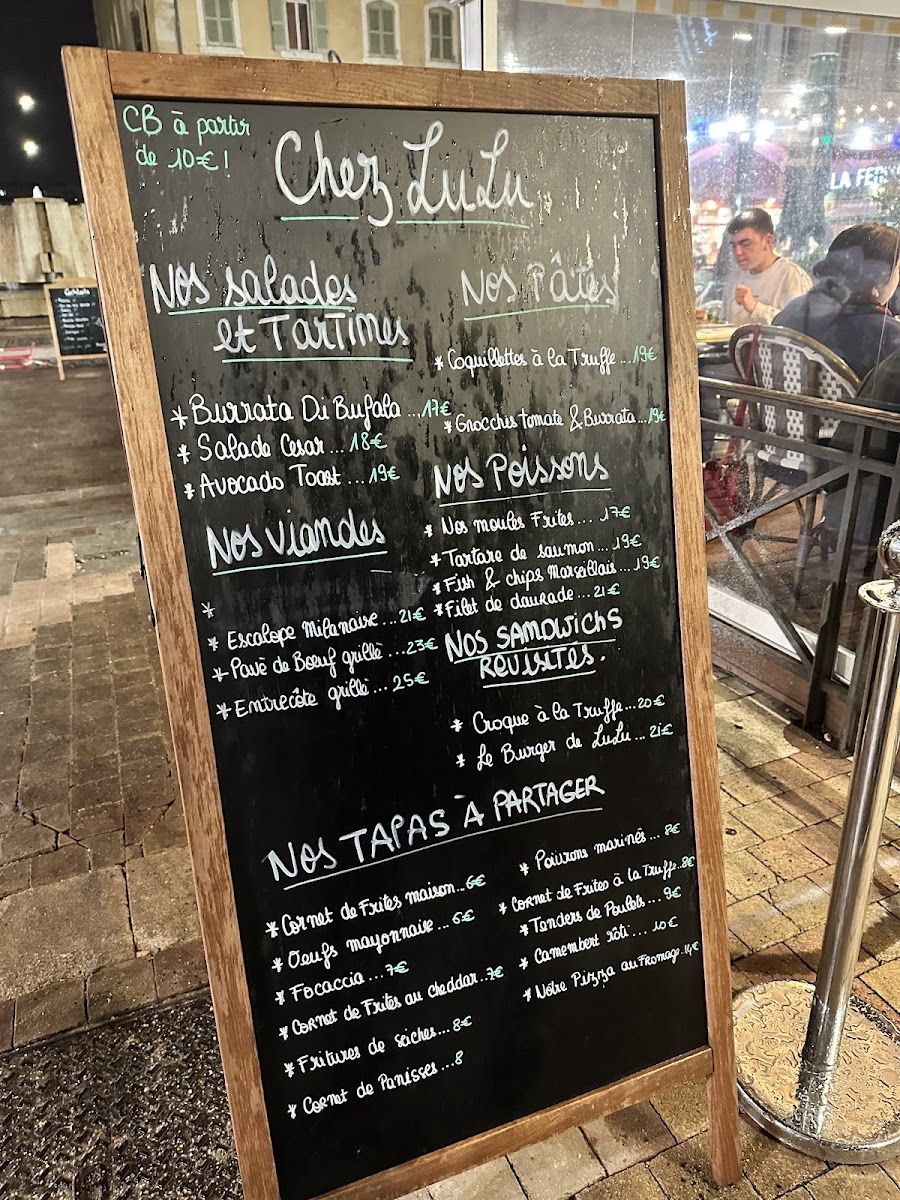 CB à partir
de 10€!
Chez LuLu
Nos salades
et Tartines
* Burrata Di Bufala ...17€
* Salade Cesar ... 18€
* Avocado Toast ... 19€
Nos viandes
*
* Escalope Milanaise ...21€
* Pavé de Boeuf grillé ...23€
* Entrecôte grillé ... 25€
Nos Pâtes
* Coquillettes à la Truffe ...19€
* Gnocchis Tomate & Burrata...19€
Nos Poissons
* Nos moules Frites ... 17€
* Tartare de saumon ... 19€
* Fish & chips Marseillais ... 19€
* Filet de daurade ... 21€
Nos SANDWICHS
REVISITÉS.
* Croque à la Truffe...20€
* Le Burger de LuLu ... 21€
Nos TAPAS À PARTAGER
* Cornet de Frites maison...6€
* Oeufs mayonnaise ...6€
* Focaccia ...7€
* Cornet de Frites au cheddar..7€
* Fritures de seiches...8€
* Cornet de Panisses ...8
* Poivrons marinés ... 8€
* Cornet de Frites à la Truffe..8€
* Tenders de Poulets ... 9€
* Camembert rôti ... 10€
* Notre Pizza au Fromage..14€
Cocktails